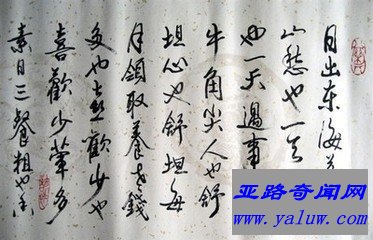 日出东海
山愁也一天
也一天遇事
牛角尖人也舒
坦心也舒坦每
月領取養老錢
多也喜歡少也
喜歡少葷多
素日三餐粗也香
亚路奇闻网
www.yaluw.com